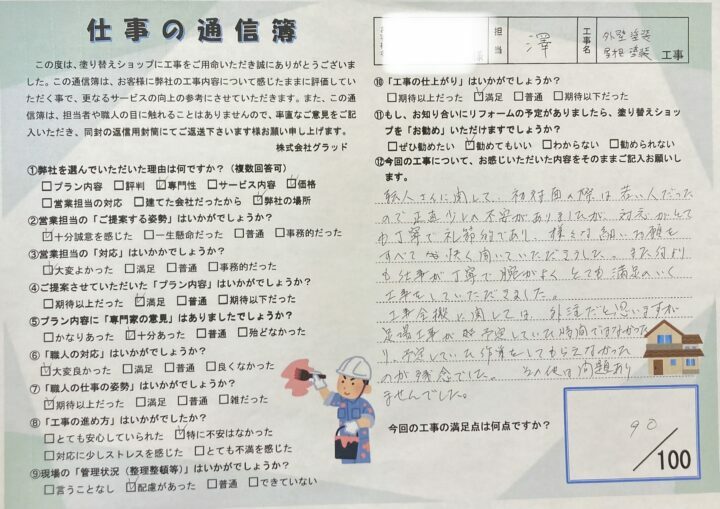 仕事の通信簿
この度は、塗り替えショップに工事をご用命いただき誠にありがとうございま
した。この通信簿は、お客様に弊社の工事内容について感じたままに評価してい
ただく事で、更なるサービスの向上の参考にさせていただきます。また、この通
信簿は、担当者や職人の目に触れることはありませんので、率直なご意見をご記
入いただき、同封の返信用封筒にてご返送下さいます様お願い申し上げます。
株式会社グラッド
①弊社を選んでいただいた理由は何ですか?(複数回答可)
□プラン内容 □評判 ☑専門性 □サービス内容 ☑価格
□営業担当の対応 □建てた会社だったから ☑弊社の場所
②営業担当の「ご提案する姿勢」はいかがでしょうか?
☑十分誠意を感じた □一生懸命だった □普通 □事務的だった
③営業担当の「対応」はいかがでしょうか?
☑大変よかった □満足 □普通 □事務的だった
④ご提案させていただいた「プラン内容」はいかがでしょうか?
□期待以上だった ☑満足 □普通 □期待以下だった
⑤プラン内容に「専門家の意見」はありましたでしょうか?
□かなりあった ☑十分あった □普通 □殆どなかった
⑥「職人の対応」はいかがでしょうか?
☑大変良かった □満足 □普通 □良くなかった
⑦「職人の仕事の姿勢」はいかがでしょうか?
☑期待以上だった □満足 □普通 □雑だった
⑧「工事の進め方」はいかがでしたか?
□とても安心していられた ☑特に不安はなかった
□対応に少しストレスを感じた □とても不満を感じた
⑨現場の「管理状況(整理整頓等)」はいかがでしょうか?
□言うことなし ☑配慮があった □普通 □できていない
様
担当
澤
工事名
外壁塗装
屋根塗装 工事
⑩「工事の仕上がり」はいかがでしょうか?
□期待以上だった ☑満足 □普通 □期待以下だった
⑪もし、お知り合いにリフォームの予定がありましたら、塗り替えショッ
プを「お勧め」いただけますでしょうか?
□ぜひ勧めたい ☑勧めてもいい □わからない □勧められない
⑫今回の工事について、お感じいただいた内容をそのままご記入お願いし
ます。
職人さんに関して、初対面の際は若い人だった
ので正直少しの不安がありましたが、対応がとて
も丁寧で礼節的であり、様々な細いお願を
すべて快く聞いていただきました。また何より
も仕事が丁寧で腕がよく、とても満足のいく
工事をしていただきました。
工事全般に関しては、外注だと思いますが
足場工事が予定していた時間ではなかった
り、予定していた作業をしてもらえなかった
のが残念でした。その他は問題あり
ませんでした。
今回の工事の満足点は何点ですか?
90
/100